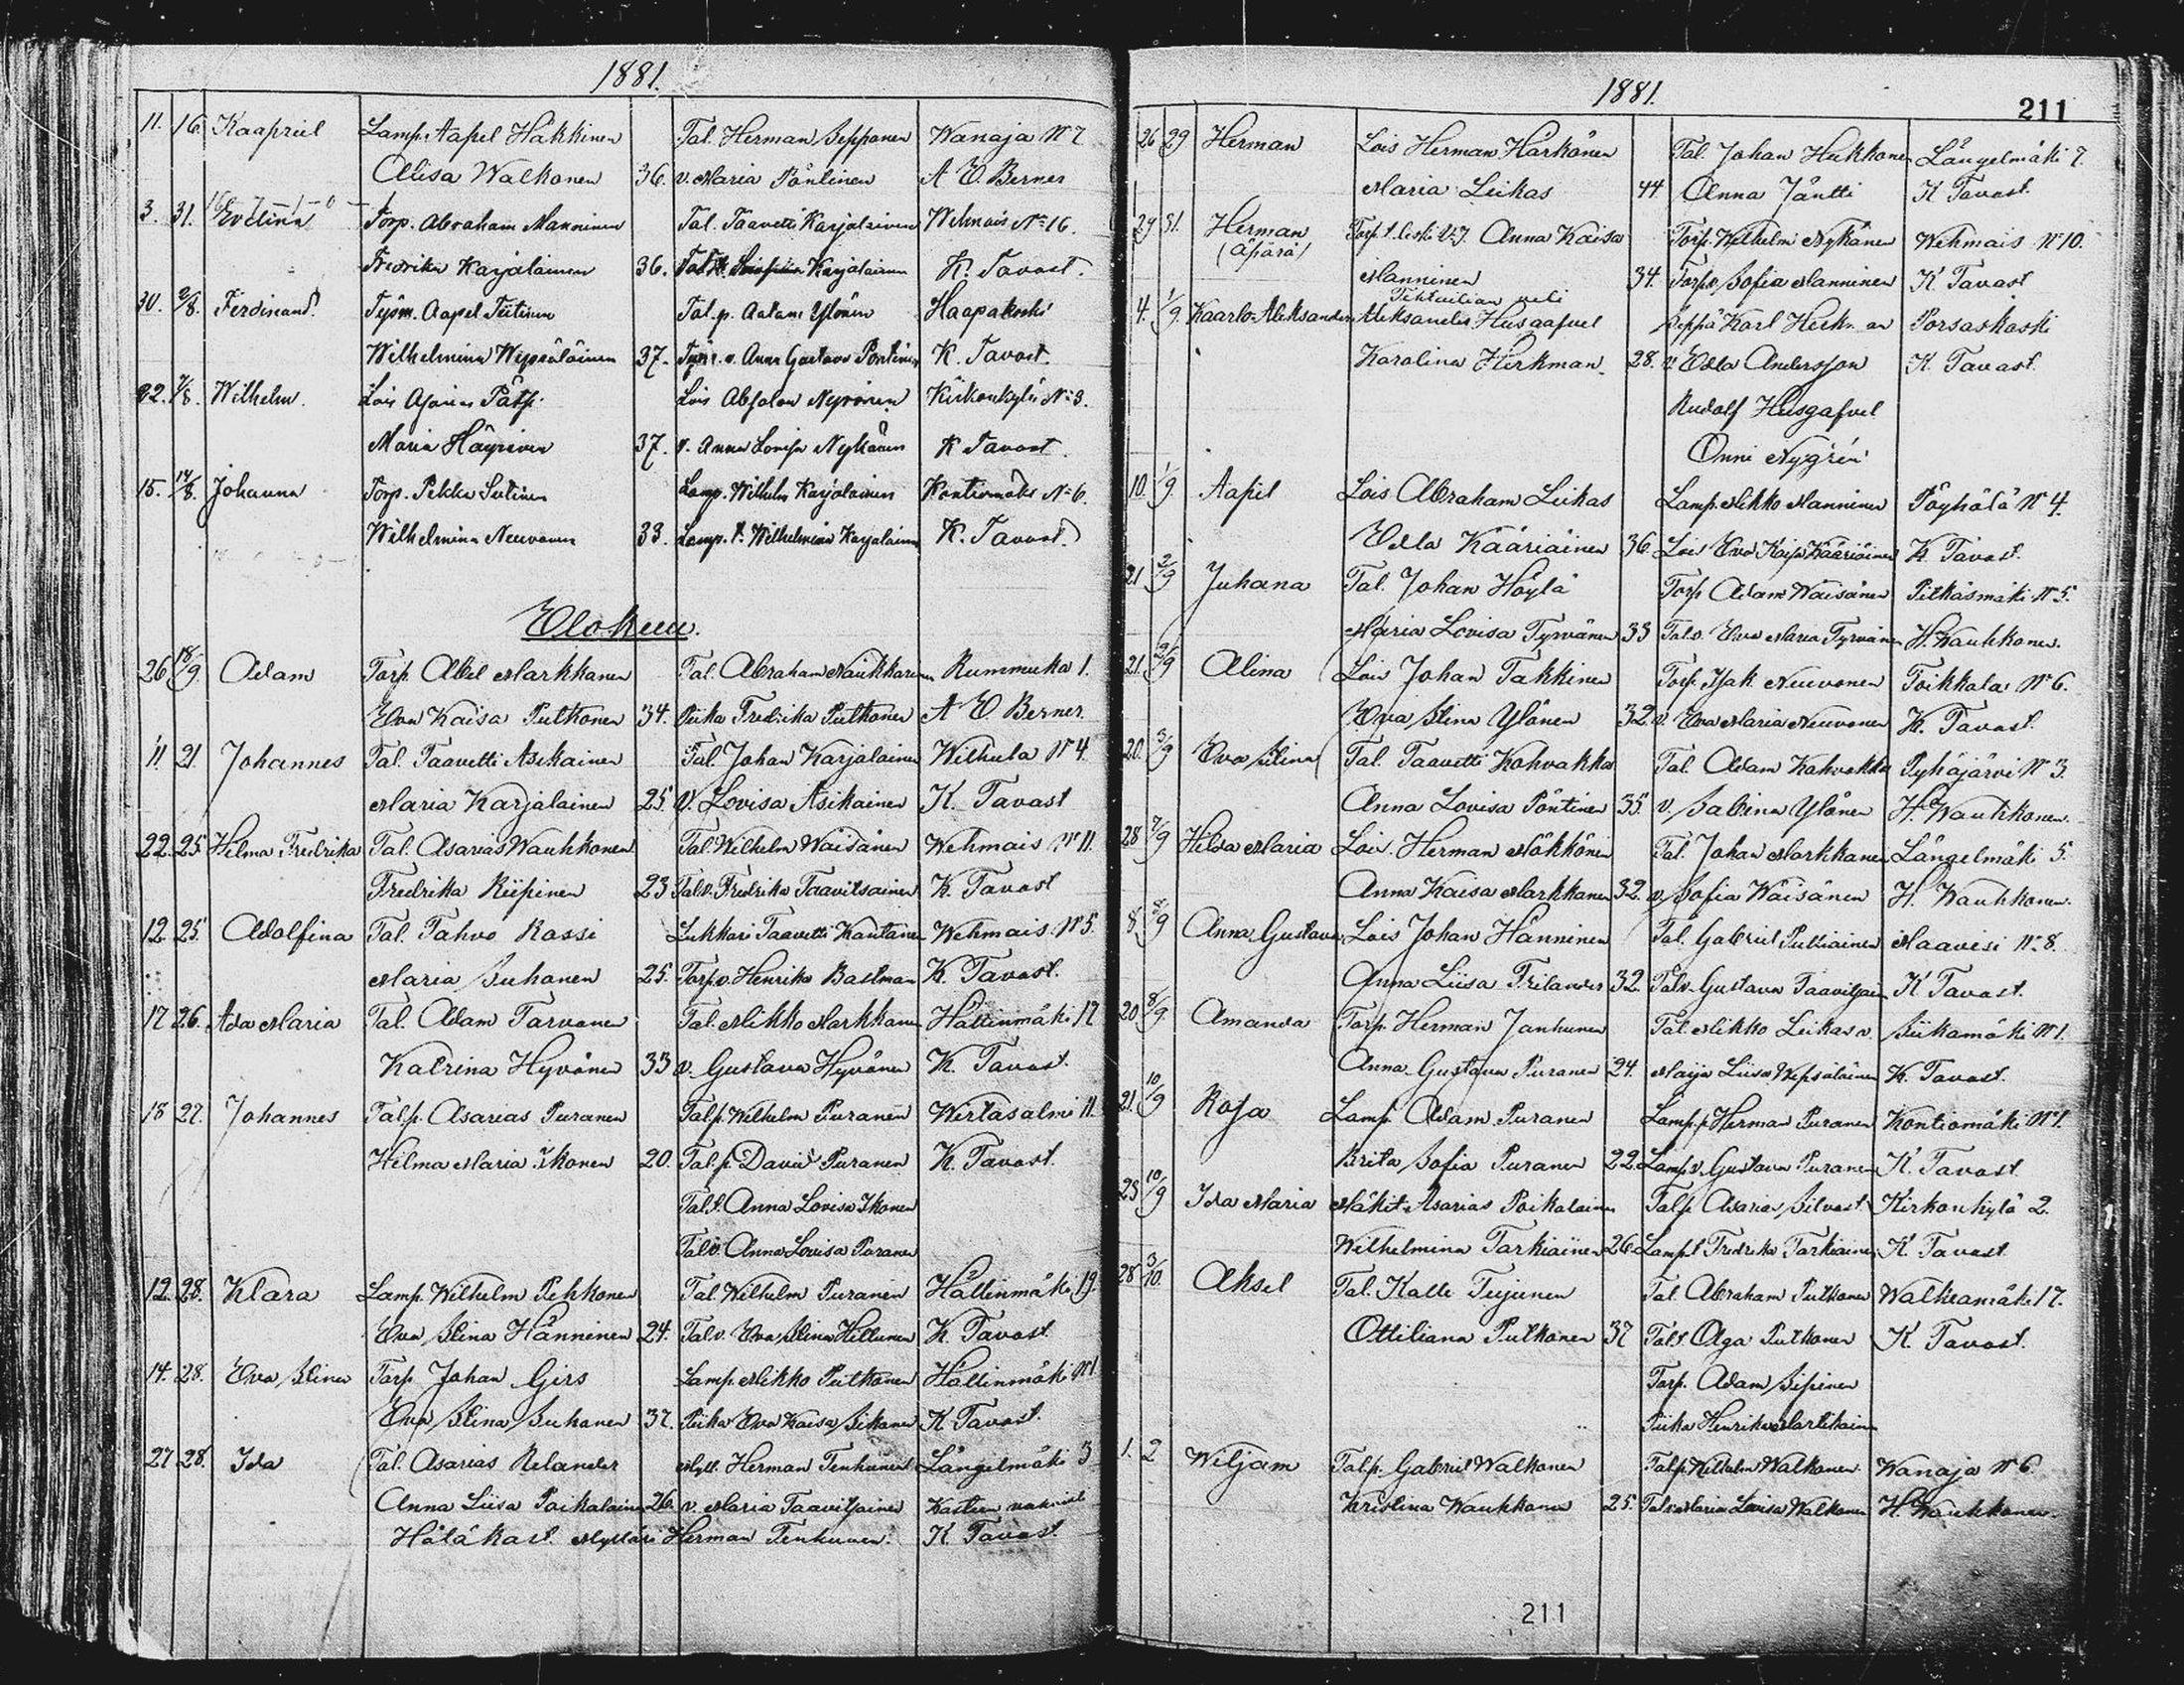 1881.
11. 16. Kaapriel Lamp. Aapel Häkkinen Tal. Herman Seppänen Wanaja N 7
Alisa Walkonen 36. v. Maria Pöntinen A E Berner
3. 31. Evelina Torp. Abraham Manninen Tal. Taavetti Karjalainen Wehmais N:16.
Fredrika Karjalainen 36. Karjalainen K. Tavast.
30. 2/8. Ferdinand. Työm. Aapel Tiitinen Tal. p. Aadam Ylönen Haapakoski
Wilhelmina Wepsäläinen 37. Anna Gustava Pöntinen K. Tavast.
22. 7/8. Wilhelm. Lois Asarias Lois Absalon Nyrönen Kirkonkylä N:3.
Maria Häyrinen 37. v. Anna Lovisa Nykänen K Tavast.
15. 14/8. Johanna Torp. Pekka Sutinen Lamp. Wilhelm Karjalainen Kontiomäki N:6.
Wilhelmina Neuvonen 33. Lamp. t. Wilhelmina Karjalainen K. Tavast.
Elokuu.
26 18/9. Adam Torp. Abel Markkanen Tal. Abraham Naukkarinen Rummuka 1.
Eva Kaisa Putkonen 34. Piika Fredrika Putkonen A E Berner.
11. 21. Johannes Tal. Taavetti Asikainen Tal. Johan Karjalainen Wilhula N 4.
Maria Karjalainen 25. v. Lovisa Asikainen K. Tavast
22. 25 Hilma Fredrika Tal. Asarias Wauhkonen Tal. Wilhelm Wäisänen Wehmais N 11.
Fredrika Riipinen 23 Talv. Fredrika Taavitsainen K. Tavast
12. 25. Adolfina Tal. Pahvo Rossi Lukkari Taavetti Kantanen Wehmais N 5.
Maria Suhanen 25. Torp.v. Henrika Bastman K. Tavast.
17 26. Ada Maria Tal. Adam Tarvanen Tal. Mikko Markkanen Hällinmäki 17
Katrina Hyvönen 33 v. Gustava Hyvönen K. Tavast.
18 27. Johannes Talp. Asarias Puranen Talp. Wilhelm Puranen Wirtasalmi 11.
Hilma Maria Ikonen 20. Tal.p. David Puranen K. Tavast.
Tal.t. Anna Lovisa Ikonen
Talv. Anna Lovisa Puranen
12. 28. Klara Lamp. Wilhelm Pehkonen Tal. Wilhelm Puranen Hällinmäki 19.
Eva Stina Hänninen 24. Talv. Eva Stina Hillunen K. Tavast.
14. 28. Eva Stina Torp. Johan Girs Lamp. Mikko Putkonen Hällinmäki N1
Eva Stina Suhanen 37. Piika Eva Kaisa Sikanen K Tavast.
27 28. Ida Tal. Asarias Relander Myll. Herman Tenhunen Längelmäki 3
Anna Liisa Poikalainen 26. v. Maria Taavitsainen Kasteen
Hätäkast. Mylläri Herman Tenhunen. K. Tavast.
1881.
211
26 29 Herman Lois Herman Härkönen Tal. Johan Hukkonen Längelmäki 7.
Maria Leikas 44 Anna Jäntti K Tavast.
29 31. Herman Torp. t. leski Anna Kaisa Torp. Wilhelm Nykänen Wehmais N10.
(Äpärä) Manninen 34. Torp.v. Sofia Manninen K Tavast
Tiktailian veli
4. 1/9. Kaarlo Aleksander Aleksander Husgafvel Seppä Karl Porsaskoski
Karolina Hirkman 28. v. Edla Andersson K. Tavast.
Rudolf Husgafvel
Onni Nygrén
10. 1/9 Aapil Lois Abraham Leikas Lamp. Mikko Manninen Pöyhölä N 4.
Edla Kääriäinen 36. Lois Eva Kaisa Kääriäinen K Tavast.
21 2/9 Juhana Tal. Johan Höylä Torp. Adam Wäisänen Pitkäsmäki N 5.
Maria Lovisa Tyrvänen 33 Talv. Eva Maria Tyrvänen H. Wauhkonen.
21. 2/9 Alina Lois Johan Takkinen Torp. Isak Neuvonen Toikkala N 6.
Eva Stina Ylönen 32. v. Eva Maria Neuvonen K. Tavast.
20. 3/9 Eva Stina Tal. Taavetti Kohvakka Tal. Adam Kohvakka Pyhäjärvi N 3.
Anna Lovisa Pöntinen 35. v. Sabina Ylönen H. Wauhkonen.
28 7/9 Hilda Maria Lois. Herman Mökkönen Tal. Johan Markkanen Längelmäki 5.
Anna Kaisa Markkanen 32. v. Sofia Wäisänen H. Wauhkonen.
8 8/9 Anna Gustava Lois Johan Hänninen Tal. Gabriel Putkiainen Maavesi N:8.
Anna Liisa Frilander 32. Talv. Gustava Taavitsain K Tavast.
20 8/9. Amanda Torp. Herman Janhunen Tal. Mikko Leikas v. Siikamäki N1.
Anna Gustava Puranen 24. Maija Liisa Wepsäläinen K. Tavast.
21. 10/9 Rosa Lamp. Adam Puranen Lamp.p. Herman Puranen Kontiomäki N1.
Brita Sofia Puranen 22. Lamp.v. Gustava Puranen K. Tavast
23 10/9 Ida Maria Mäkit. Asarias Poikalainen Talp. Asarias Silvast. Kirkonkylä 2.
Wilhelmina Tarkiainen 26. Lamp.t. Fredrika Tarkiainen K. Tavast.
28 3/10. Aksel Tal. Kalle Teijunen Tal. Abraham Putkonen Walkeamäki 17.
Ottiliana Putkonen 37 Tal.t. Olga Putkonen K. Tavast.
Torp. Adam Sipinen
Piika Henrika Martikain
1. 2 Wiljam Talp. Gabriel Walkonen Talp. Wilhelm Walkonen Wanaja N 6.
Kristina Wauhkonen 25. Talv. Maria Lovisa Walkonen H. Wauhkonen.
211